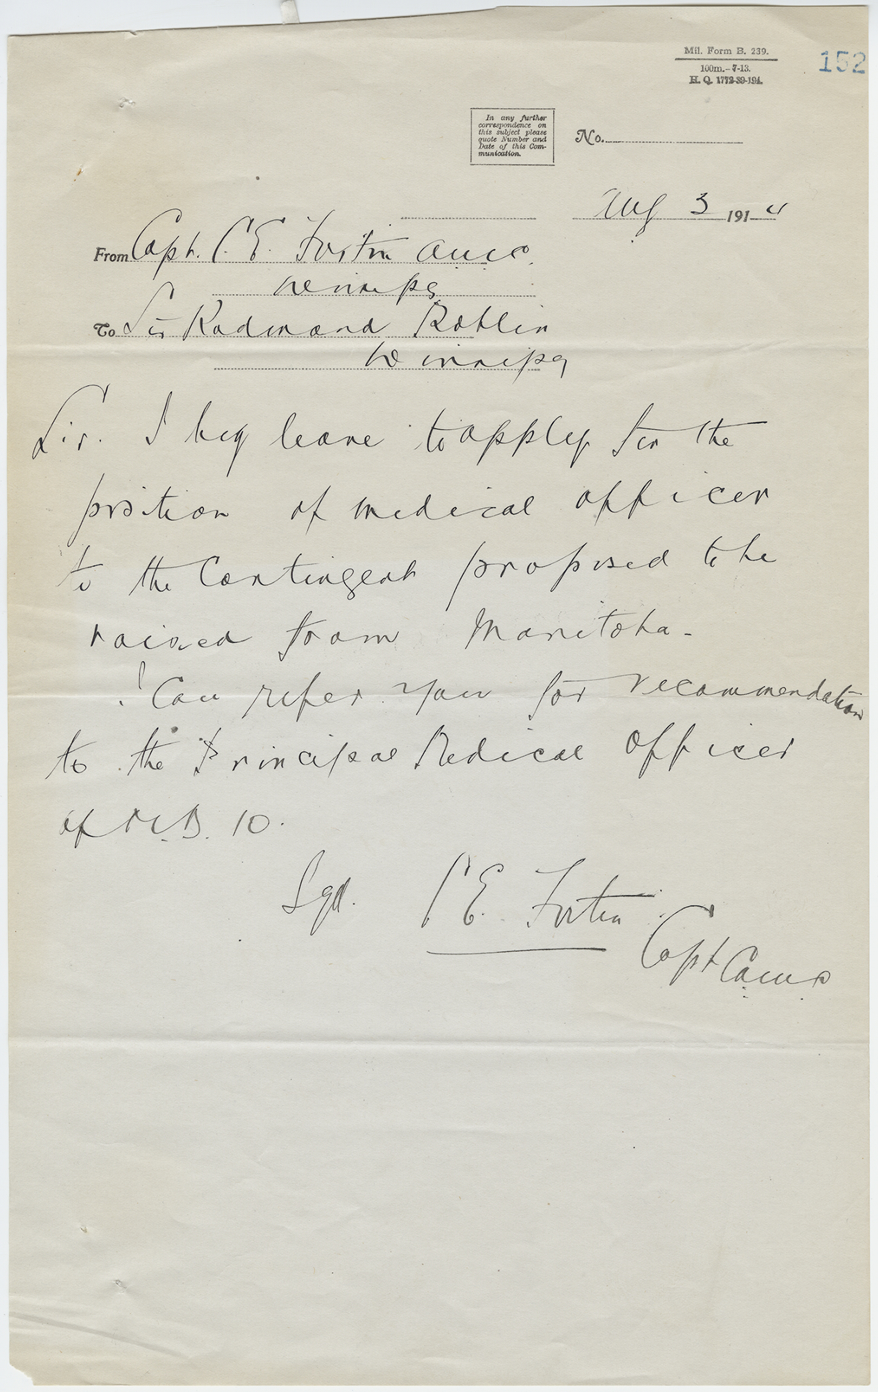 Mil. Form B. 239.
100m.-7-13.
H. Q. 1772-39-194.
152
In any further
correspondence on
this subject please
quote Number and
Date of this Com-
munication.
No.
Aug 3 1914
From Capt. C. E. Fortin
Winnipg
To Sir Rodmond Roblin
Winnipg
Sir. I beg leave to apply for the
position of medical officer
to the Contingent proposed to be
raised from Manitoba -
I Can refer you for recommendation
to the Principal Medical Officer
of M.D. 10.
Sgd. C E. Fortin
Capt Camc